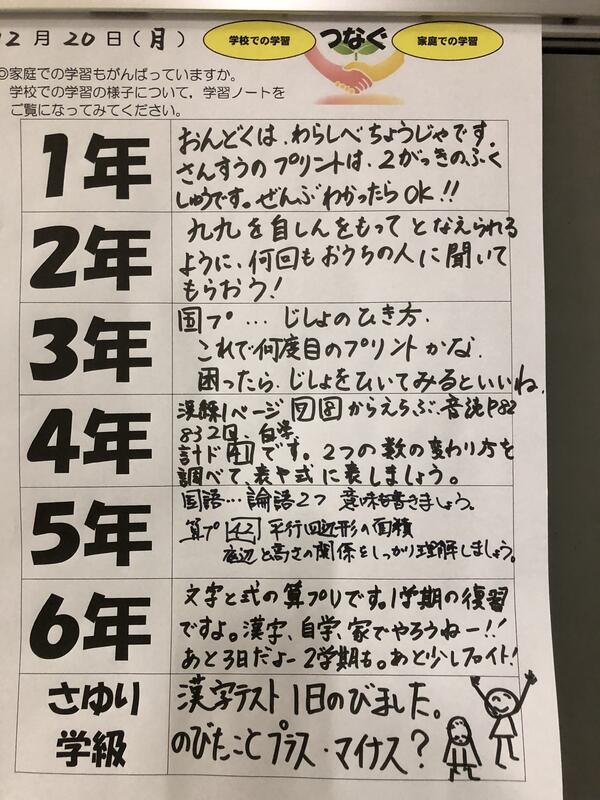 12月20日(月)
学校での学習
つなぐ
家庭での学習
◎家庭での学習もがんばっていますか。
学校での学習の様子について,学習ノートを
ご覧になってみてください。
1年
おんどくは、わらしべちょうじゃです。
さんすうのプリントは、2がっきのふく
しゅうです。ぜんぶわかったらOK!!
2年
九九を自しんをもってとなえられる
ように、何回もおうちの人に聞いて
もらおう!
3年
国プ…じしょのひき方.
これで何度目のプリントかな.
困ったら、じしょをひいてみるといいね.
4年
漢録1ページ ⑦⑧からえらぶ、音読P82
83 2回、自学
計ド41です。2つの数の変わり方を
調べて、表や式に表しましょう。
5年
国語…論語2つ 意味も書きましょう。
算プ42 平行四辺形の面積
底辺と高さの関係をしっかり理解しましょう。
6年
文字と式の算プリです。1学期の復習
ですよ。漢字、自学、家でやろうねー!!
あと3日だよー2学期も。あと少しファイト!
さゆり
学級
漢字テスト1日のびました。
のびたことプラス・マイナス?